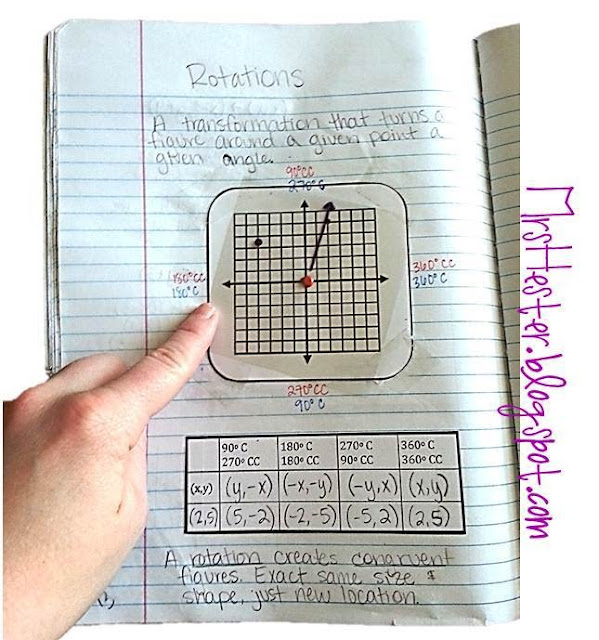 Rotations
A transformation that turns a
figure around a given point a
given angle.
90° CC
270° C
180° CC
180° C
360° CC
360° C
270° CC
90° C
90° C 180° C 270° C 360° C
270° CC 180° CC 90° CC 360° CC
(x,y) (y,-x) (-x,-y) (-y,x) (x,y)
(2,5) (5,-2) (-2,-5) (-5,2) (2,5)
A rotation creates congruent
figures. Exact same size &
shape, just new location.
MrsHester.blogspot.com